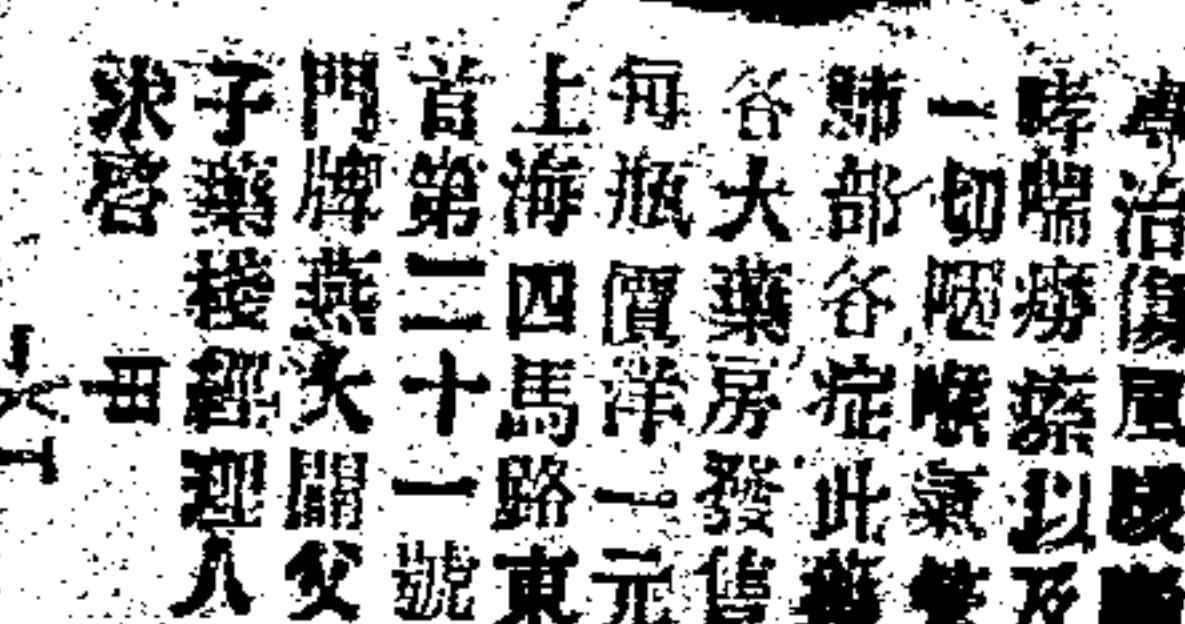 專治傷風咳嗽
哮喘癆瘵以及
一切咽喉氣管
肺部各症此藥
各大藥房發售
每瓶價洋一元
上海四馬路東
首第二十一號
門牌燕大開父
子藥棧經理人
啓